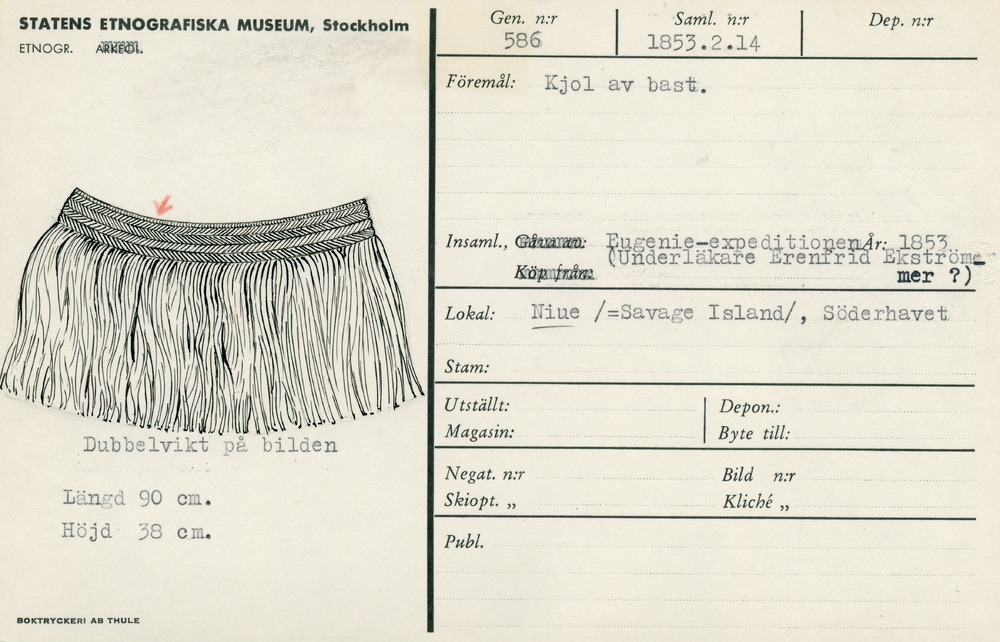 STATENS ETNOGRAFISKA MUSEUM, Stockholm
ETNOGR. ARKEOL.
Dubbelvikt på bilden
Längd 90 cm.
Höjd 38 cm.
BOKTRYCKERI AB THULE
Gen. n:r Saml. n:r Dep. n:r
586 1853.2.14
Föremål: Kjol av bast.
Insaml., Gåva av: Eugenie-expeditionen År: 1853
(Underläkare Erenfrid Ekströmer
Köp från: mer ?)
Lokal: Niue /=Savage Island/, Söderhavet
Stam:
Utställt: Depon.:
Magasin: Byte till:
Negat. n:r Bild n:r
Skiopt. „ Kliché „
Publ.